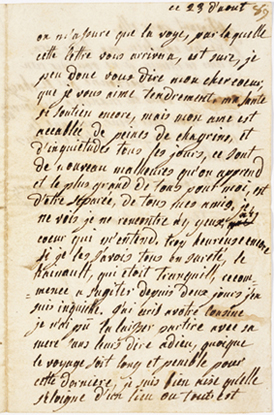 ce 23 d'aout 59
on m'assure que la voye, par laquelle
cette lettre vous arrivera, est sure, je
peu donc vous dire mon cher coeur,
que je vous aime tendrement, ma santé
se soutien encore, mais mon ame est
accablée de peines de chagrins, et
d'inquietudes tous les jours, ce sont
de nouveau malheures qu'on apprend
et le plus grand de tous pour moi, est
d'etre separée, de tous mes amis, je
ne vois je ne rencontre des yeux, ni
coeur qui m'entend, trop heureuse encore
si je les savois tous en sureté, le
qui etoit tranquill, recom-
mence a s'agiter depuis deux jours j'en
suis inquiette. j'ai ecrit votre
je n'ai pu la laisser partire avec sa
mere sans leurs dire adieu, quoique
le voyage soit long et penible pour
cette derniere, je suis bien aise qu'elle
s'eloigne d'un lieu ou tout est